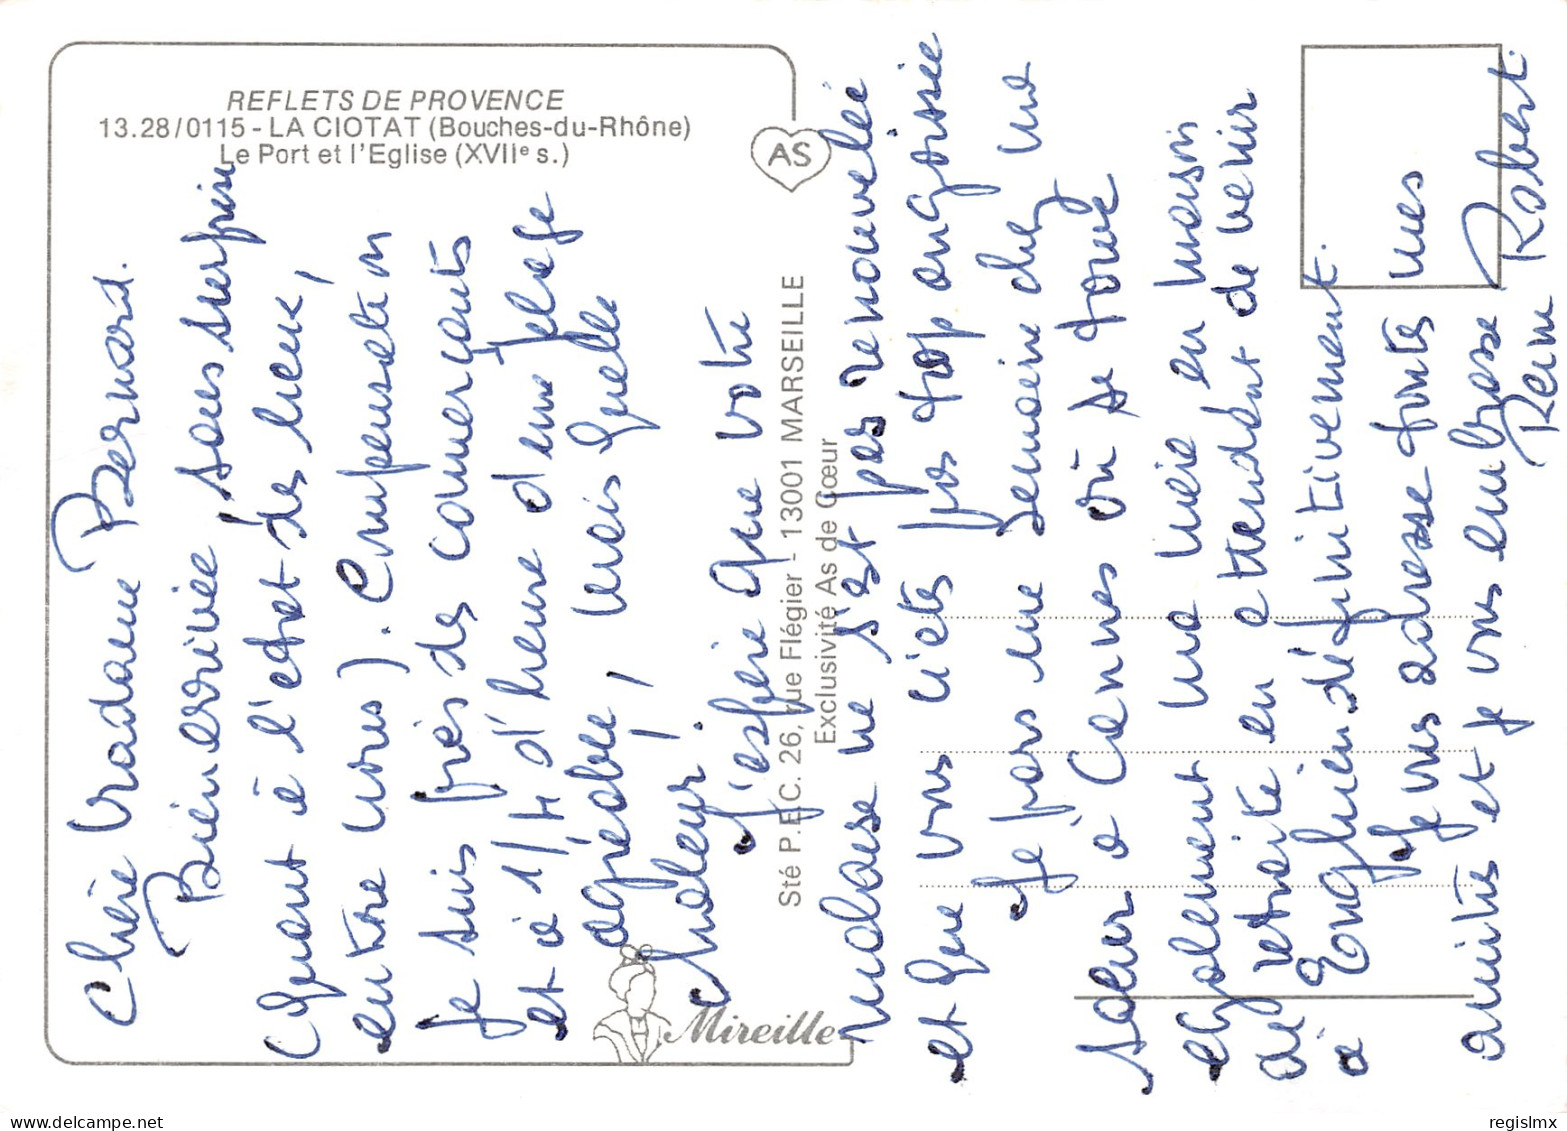 REFLETS DE PROVENCE
13.28/0115 - LA CIOTAT (Bouches-du-Rhône)
Le Port et l'Eglise (XVIIe s.)
AS
Sté P.E.C. 26, rue Flégier - 13001 MARSEILLE
Exclusivité As de Cœur
Mireille
Chère Madame Bernard.
Bien arrivée, sans surprise
quant à l'état des lieux,
(entre nous). Compensation
je suis près des commerçants
et à 1/4 d'heure d'une plage
agréable, mais quelle
chaleur!
J'espère que votre
malaise ne s'est pas renouvelé
et que vous n'êtes pas trop angoissée
Je pars une semaine chez une
sœur à Cannes où se trouve
également ma nièce en maison
de retraite en attendant de venir
à Enghien définitivement.
Je vous adresse toutes mes
amitiés et je vous embrasse
Robert
regislmx